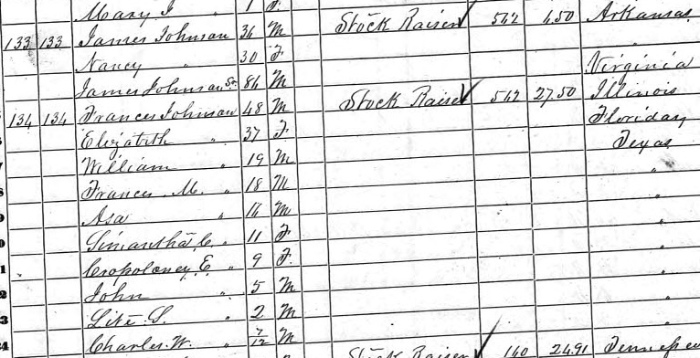 Mary J " 1 F
133 133 James Johnson 36 M Stock Raiser 562 650 Arkansas
Nancy " 30 F "
James Johnson Sr. 84 M Virginia
134 134 Frances Johnson 48 M Stock Raiser 562 2750 Illinois
Elizabeth " 37 F Floriday
William " 19 M Texas
Frances M. " 18 M "
Asa " 16 M "
Simantha C. " 11 F "
E. " 9 F "
John " 5 M "
S. " 2 M "
Charles W. " 7/12 M "
Stock Raiser 160 2491 Tennessee